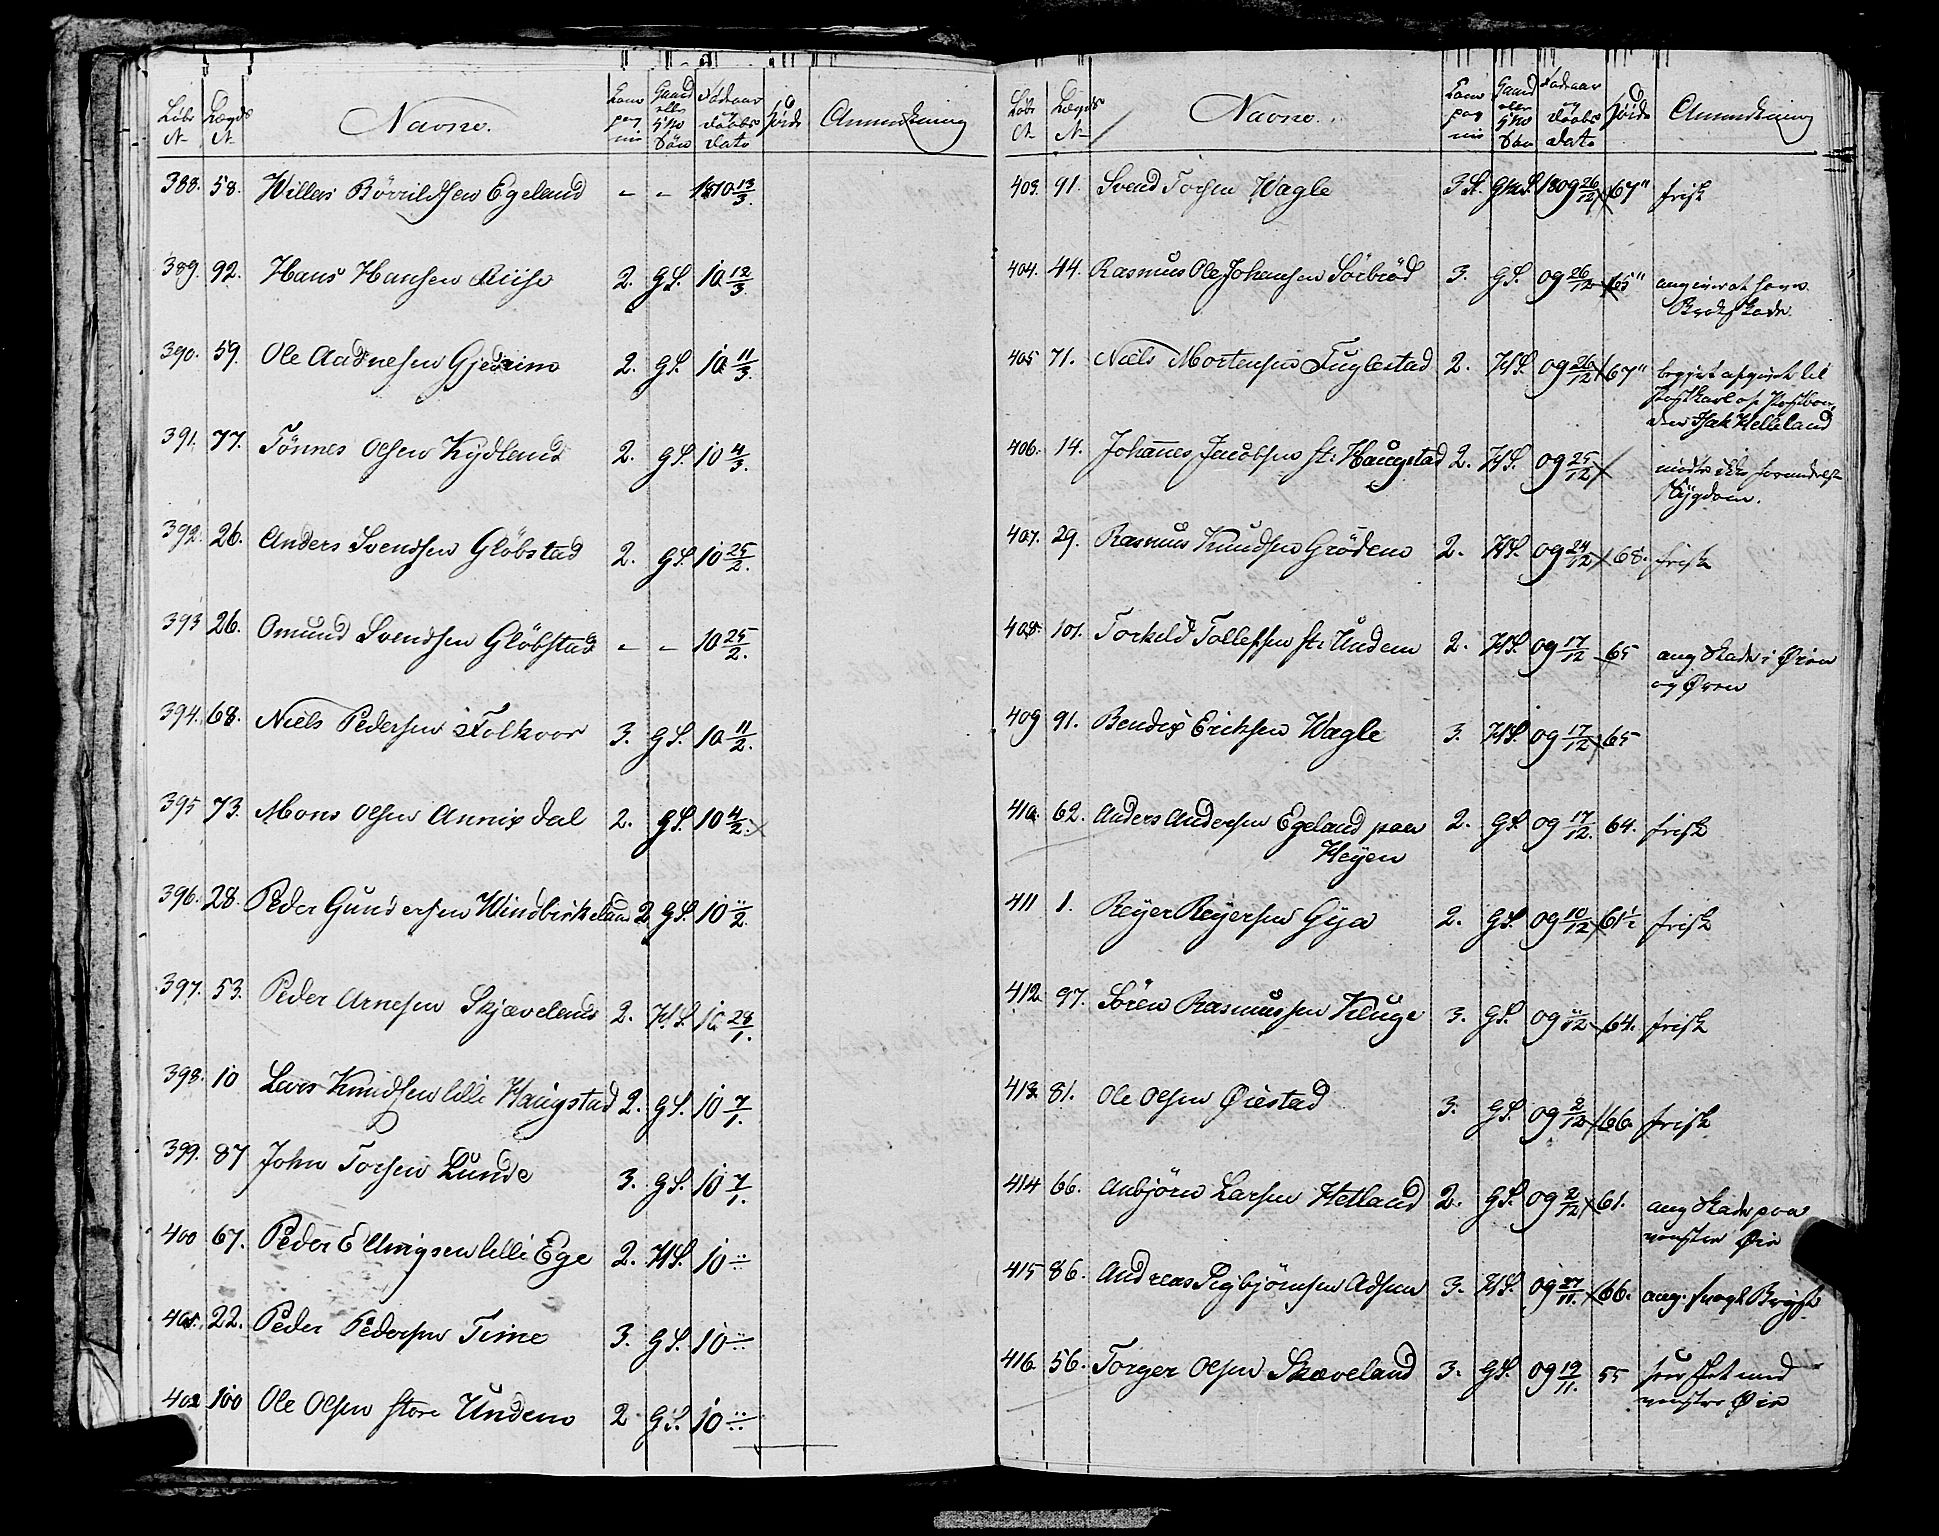 Løbe N Lægds N Navne. Kom pag nie Gaard eller Hs Søn Fødaar og Daabs Dato Høide Anmerkning
388. 58. Willers Børrildsen Egeland - - 1810 13/3.
389. 92. Hans Hansen Riise 2. G S. 10 12/3.
390. 59. Ole Aadnesen Gjedrim 2. G S. 10 11/3.
391. 77. Tønnes Olsen Kydland 2. G S. 10 4/3.
392. 26. Anders Svendsen Gløbstad 2. G S. 10 25/2.
393 26. Omund Svendsen Gløbstad - - 10 25/2.
394. 68. Niels Pedersen Folkvor 3. G S. 10 11/2.
395 73. Mons Olsen Annixdal 2. G S. 10 4/2.
396. 28. Peder Gundersen Windbirkeland 2 G S. 10 "/2.
397. 53. Peder Arnesen Skjæveland 2. H S. 10 28/1.
398. 10 Lars Knudsen lille Haugstad 2. G S. 10 7/1.
399. 87 John Torsen Lunde 3. G S. 10 7/1.
400 67. Peder Ellingsen lille Ege 2. H S. 10
401. 22. Peder Pedersen Time 3. G S. 10
402 100 Ole Olsen store Undem 2 G S. 10
Løbe N Lægds N Navne. Kom pag nie Gaard eller Hs Søn Fødaar og Daabs Dato Høide Anmerkning
403. 91. Svend Torsen Wagle 3 S. 1809 26/12 67" frisk
404. 44. Rasmus Ole Johansen Sørbrød 3. G S. 09 26/12 65" angiver at have
Brokskade.
405 71. Niels Mortensen Fuglestad 2. H S. 09 26/12 67" begjert afgivet til
Postkarl af Postbon
den Isak Helleland
406. 14. Johannes Jacobsen st: Haugstad 2. H S. 09 25/12 mødte ikke formedelst
Sygdom.
407. 29. Rasmus Knudsen Grødem 2. H S. 09 24/12 68. frisk
408. 101. Torkild Tollefsen st: Undem 2. H S. 09 17/12 65 ang Skade i Øien
og Øren
409 91. Bendix Eriksen Wagle 3. H S. 09 17/12 65
410. 62. Anders Andersen Egeland paa 2. G S. 09 17/12. 64. frisk
Heyen
411 1. Reyer Reyersen Gya 2. G S. 09 10/12 61 1/2 frisk
412 97. Søren Rasmussen Kluge 3. G S. 09 "/12 64. frisk
413. 81. Ole Olsen Øiestad 3. G S. 09 2/12 66. frisk
414 66. Anbjørn Larsen Hetland 2. G S. 09 2/12 61. ang Skade paa
venstre Øie
415 86. Andreas Sigbjørnsen Adsem 3. H S. 09 27/11. 66. ang. svagt Bryst
416. 56. Torger Olsen Skæveland 3. G S. 09 19/11. 55 seer slet med
venstre Øie